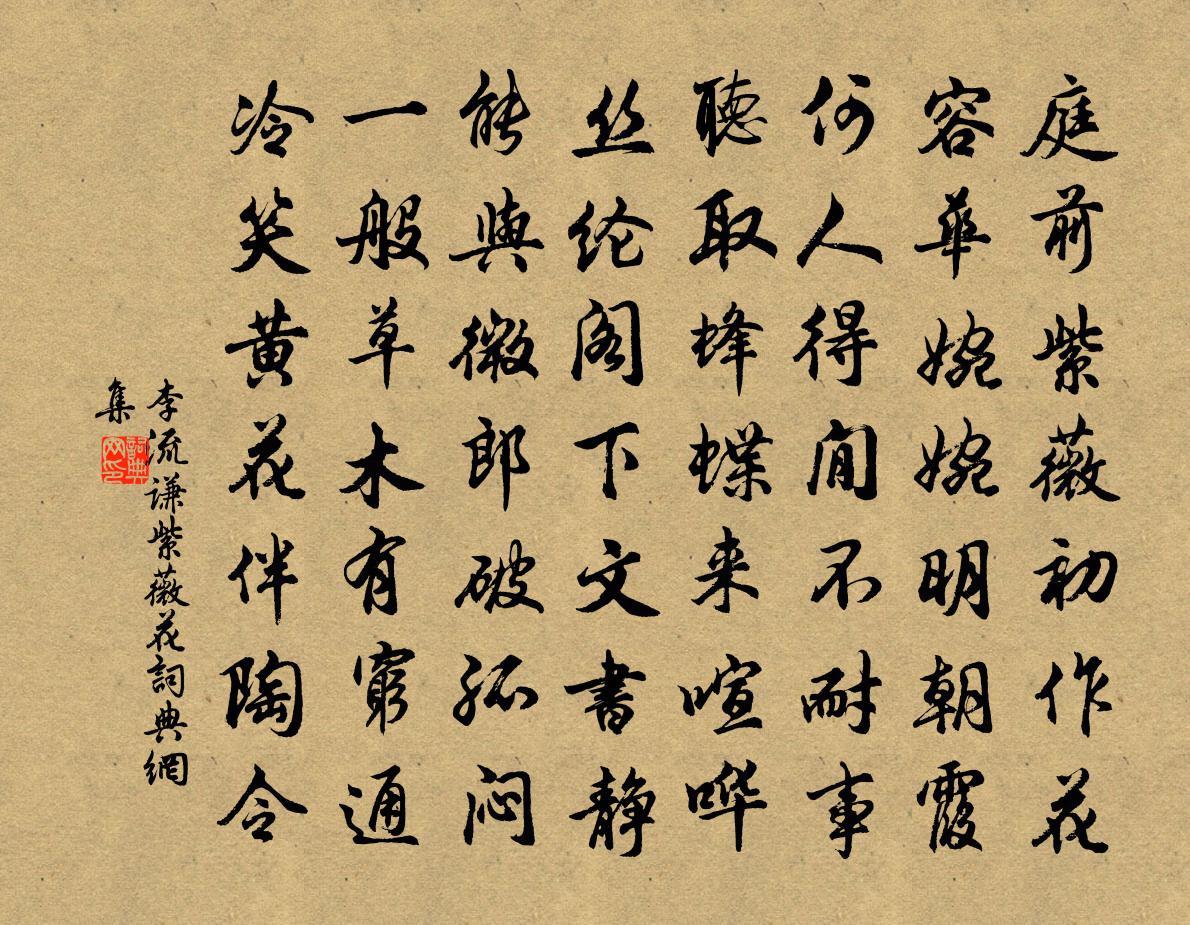 庭前紫薇初作花
容華婉婉明朝霞
何人得閒不耐事
聽取蜂蝶来喧哗
丝纶阁下文書静
能與微郎破孤闷
一般草木有窮通
冷笑黄花伴陶令
李流谦紫薇花詞典網
集
詞典网印